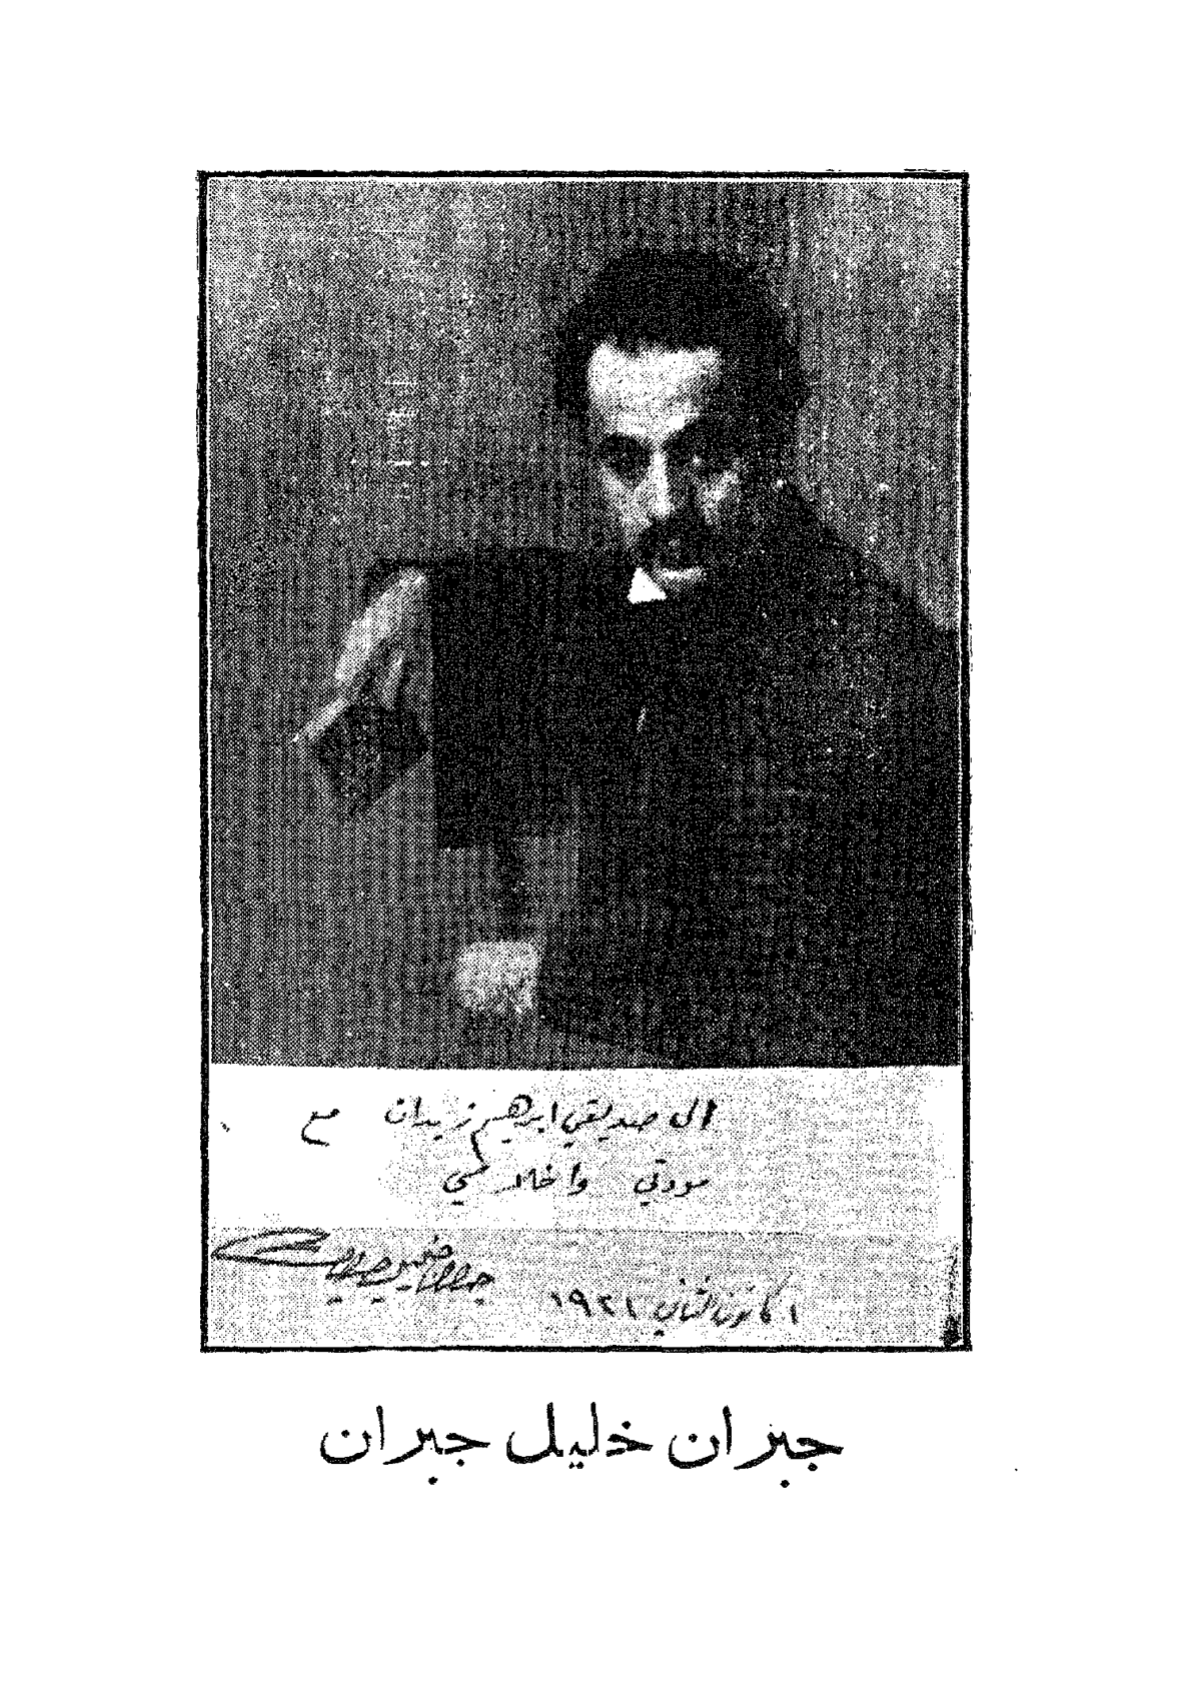 الى صديقي ابرهيم زيدان مع
مودتي واخلاصي
جبران خليل جبران
١ كانون الثاني ١٩٢١
جبران خليل جبران